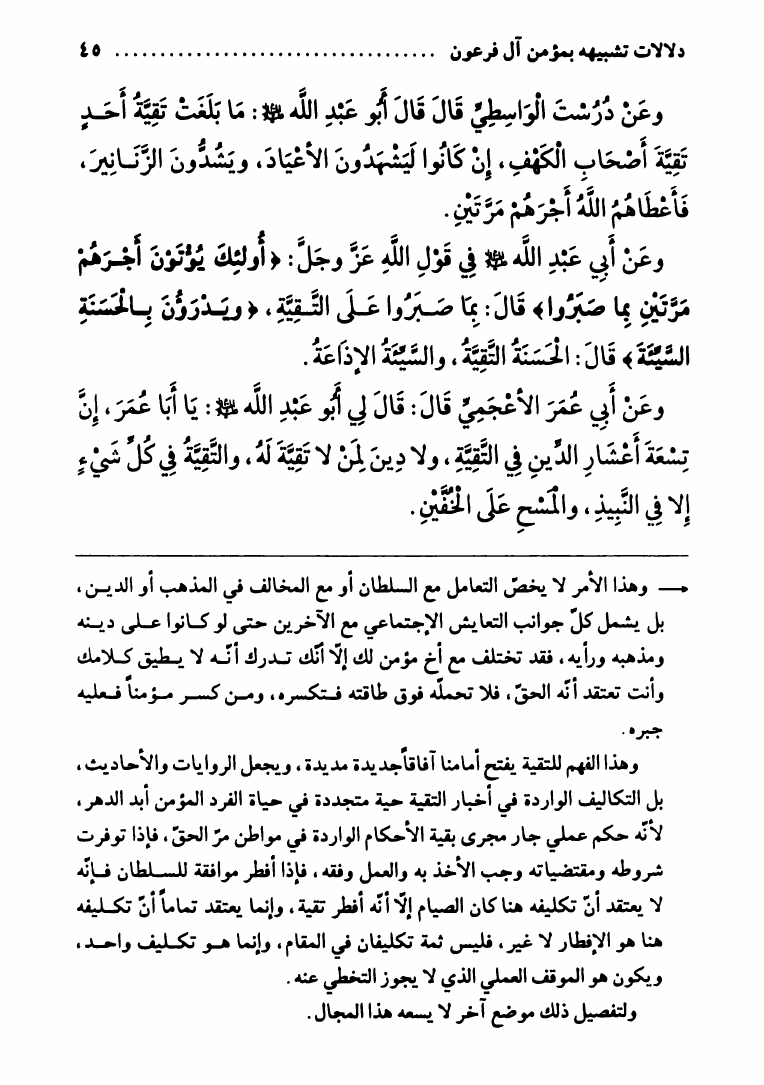 دلالات تشبيهه بمؤمن آل فرعون .................................... ٤٥
وعَنْ دُرُسْتَ الْوَاسِطِيِّ قَالَ قَالَ أَبُو عَبْدِ اللَّه ﷺ: مَا بَلَغَتْ تَقِيَّةُ أَحَـدٍ
تَقِيَّةَ أَصْحَابِ الْكَهْفِ، إِنْ كَانُوا لَيَشْهَدُونَ الأعْيَادَ، ويَشُدُّونَ الزَّنَـانِيرَ،
فَأَعْطَاهُمُ اللَّهُ أَجْرَهُمْ مَرَّتَيْنِ.
وعَنْ أَبِي عَبْدِ اللَّه ﷺ فِي قَوْلِ اللَّهِ عَزَّ وجَلَّ: ﴿أُولئِكَ يُؤْتَوْنَ أَجْـرَهُمْ
مَرَّتَيْنِ بِما صَبَرُوا﴾ قَالَ: بِمَا صَـبَرُوا عَـلَى التَّـقِيَّةِ، ﴿ويَـدْرَؤُنَ بِـالْحَسَنَةِ
السَّيِّئَةَ﴾ قَالَ: الْحَسَنَةُ التَّقِيَّةُ، والسَّيِّئَةُ الإذَاعَةُ.
وعَنْ أَبِي عُمَرَ الأعْجَمِيِّ قَالَ: قَالَ لِي أَبُو عَبْدِ اللَّه ﷺ: يَا أَبَا عُمَرَ، إِنَّ
تِسْعَةَ أَعْشَارِ الدِّينِ فِي التَّقِيَّةِ، ولا دِينَ لِمَنْ لا تَقِيَّةَ لَهُ، والتَّقِيَّةُ فِي كُلِّ شَيْءٍ
إِلا فِي النَّبِيذِ، والْمَسْحِ عَلَى الْخُفَّيْنِ.
← وهذا الأمر لا يخصّ التعامل مع السلطان أو مع المخالف في المذهب أو الديـن،
بل يشمل كلّ جوانب التعايش الإجتماعي مع الآخرين حتى لو كـانوا عـلى ديـنه
ومذهبه ورأيه، فقد تختلف مع أخ مؤمن لك إلّا أنّك تـدرك أنّـه لا يـطيق كـلامك
وأنت تعتقد أنّه الحقّ، فلا تحملّه فوق طاقته فـتكسره، ومـن كسـر مـؤمناً فـعليه
جبره.
وهذا الفهم للتقية يفتح أمامنا آفاقاًجديدة مديدة، ويجعل الروايات والأحاديث،
بل التكاليف الواردة في أخبار التقية حية متجددة في حياة الفرد المؤمن أبد الدهر،
لأنّه حكم عملي جار مجرى بقية الأحكام الواردة في مواطن مرّ الحقّ، فإذا توفرت
شروطه ومقتضياته وجب الأخذ به والعمل وفقه، فإذا أفطر موافقة للسـلطان فـإنّه
لا يعتقد أنّ تكليفه هنا كان الصيام إلّا أنّه أفطر تقية، وإنما يعتقد تماماً أنّ تكـليفه
هنا هو الإفطار لا غير، فليس ثمة تكليفان في المقام، وإنما هـو تكـليف واحـد،
ويكون هو الموقف العملي الذي لا يجوز التخطي عنه.
ولتفصيل ذلك موضع آخر لا يسعه هذا المجال.